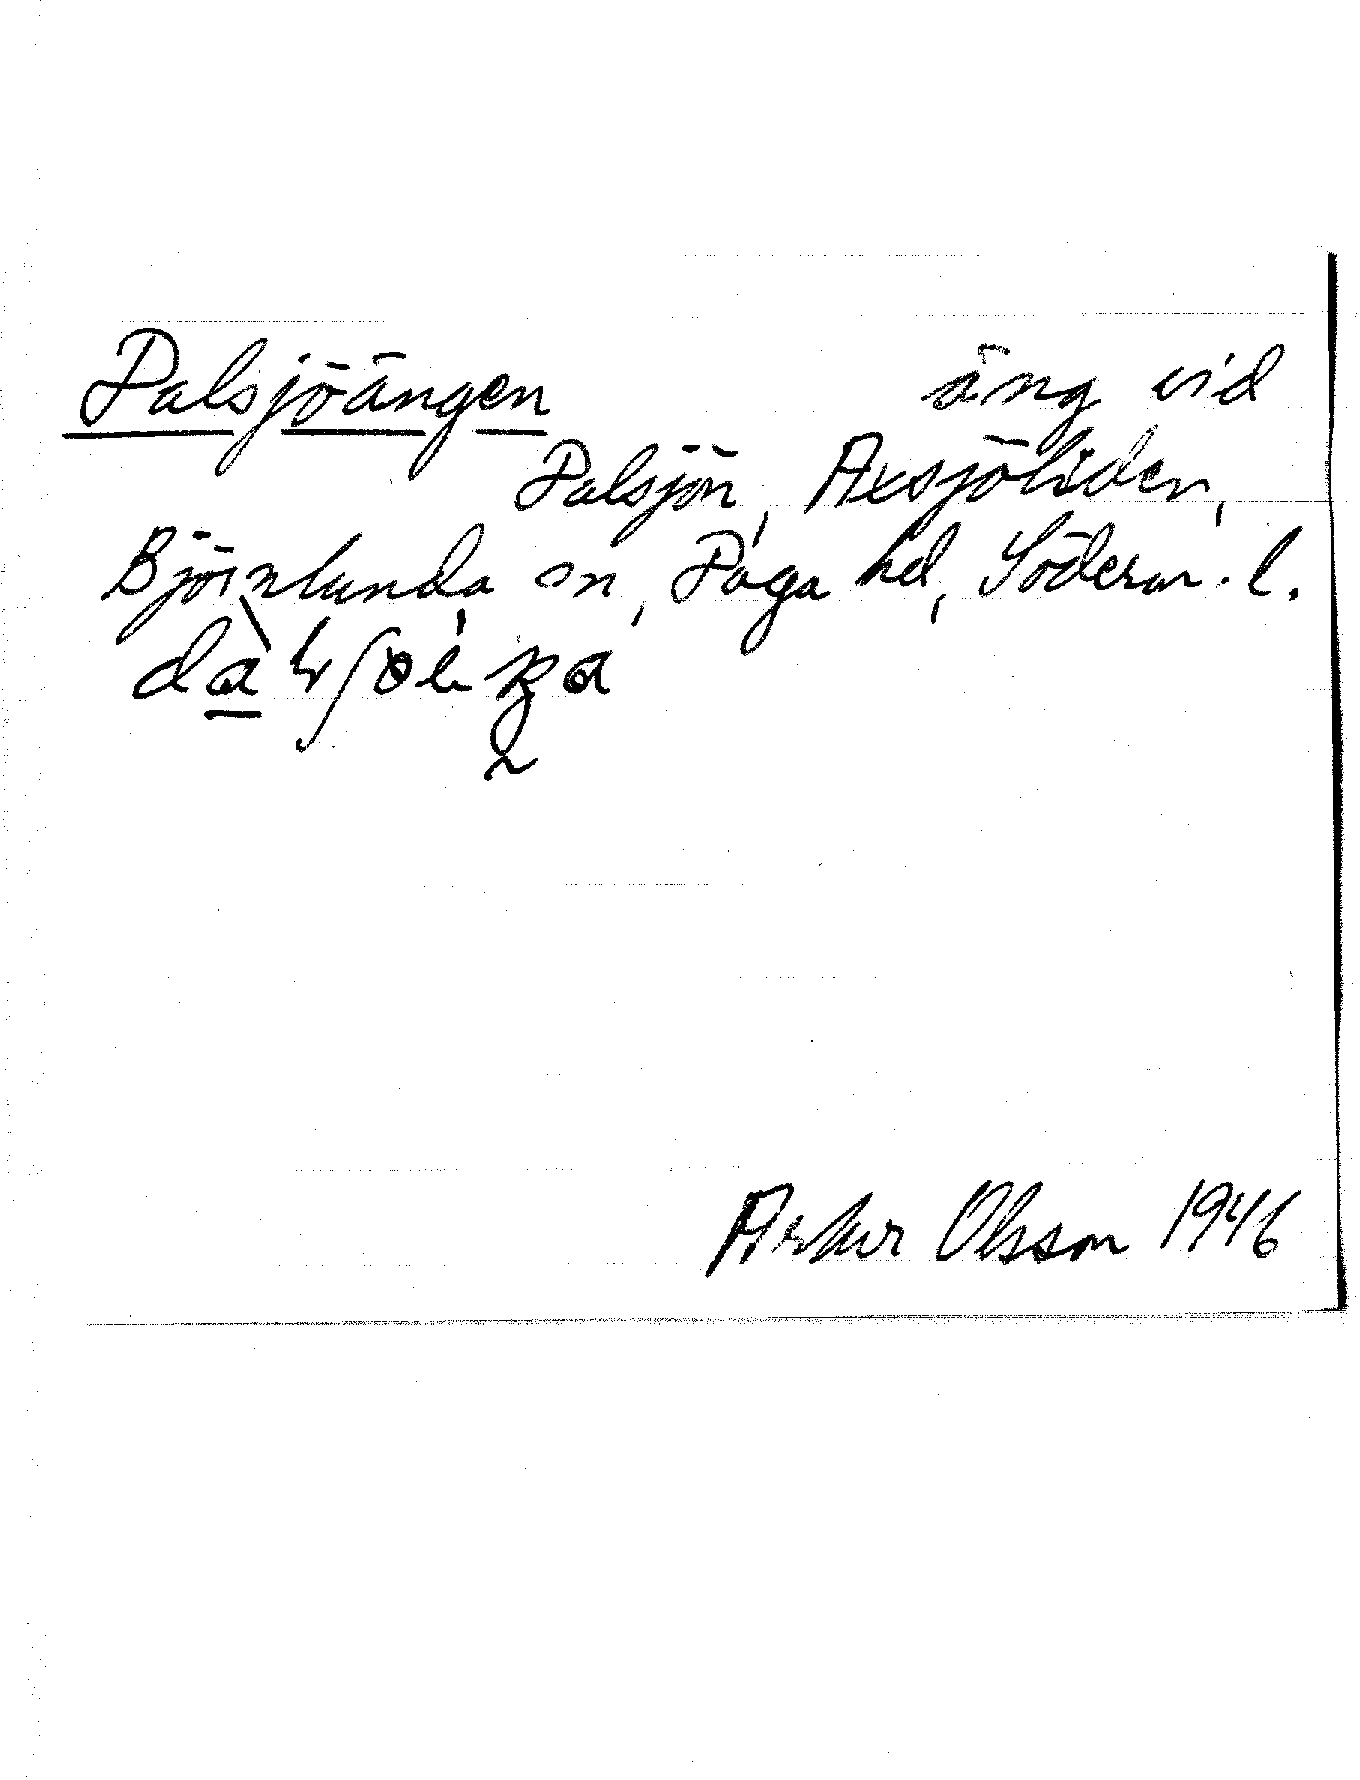 Dalsjöängen äng vid
Dalsjön, Axsjöliden,
Björnlunda sn, Daga hd, Söderm. l.
Olsson 1946